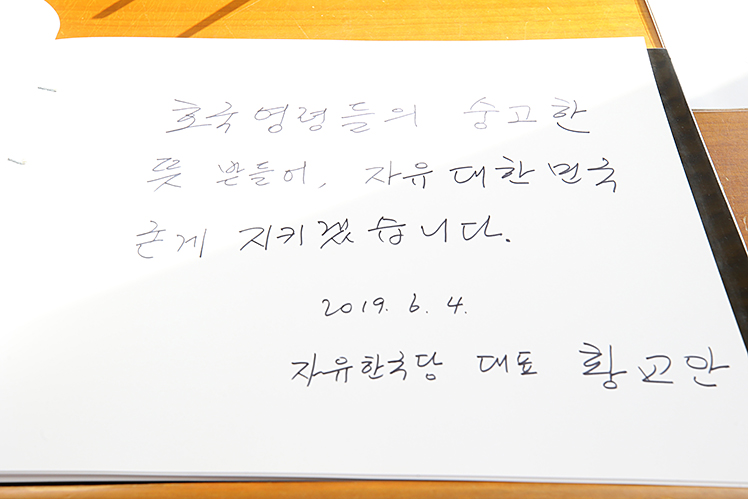 호국영령들의 숭고한
뜻 받들어, 자유대한민국
굳게 지키겠습니다.
2019. 6. 4.
자유한국당 대표 황교안